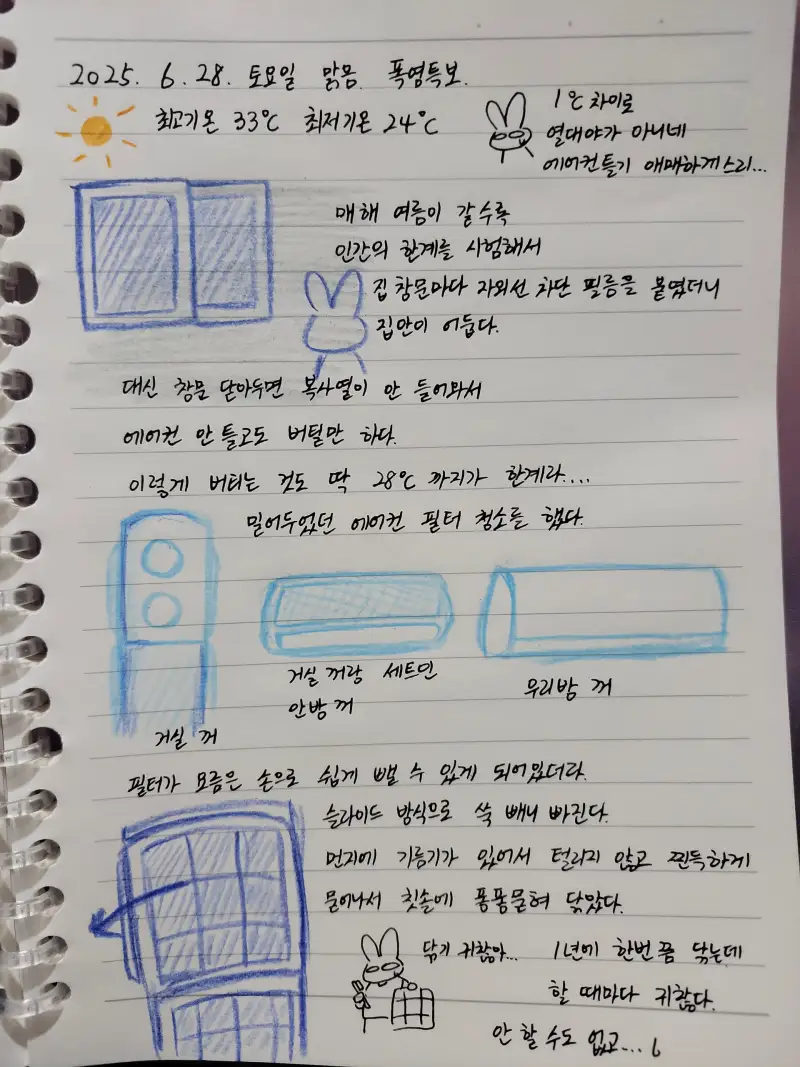 2025. 6. 28. 토요일 맑음. 폭염특보.
최고기온 33℃ 최저기온 24℃
1℃ 차이로
열대야가 아니네
에어컨틀기 애매하게스리...
매해 여름이 갈수록
인간의 한계를 시험해서
집 창문마다 자외선 차단 필름을 붙였더니
집안이 어둡다.
대신 창문 닫아두면 복사열이 안 들어와서
에어컨 안 틀고도 버틸만 하다.
이렇게 버티는 것도 딱 28℃ 까지가 한계라....
밀어두었던 에어컨 필터 청소를 했다.
거실 꺼랑 세트인
안방 꺼
우리방 꺼
거실 꺼
필터가 요즘은 손으로 쉽게 뺄 수 있게 되어있더라.
슬라이드 방식으로 쓱 빼니 빠진다.
먼지에 기름기가 있어서 털리지 않고 찐득하게
묻어나서 칫솔에 퐁퐁묻혀 닦았다.
닦기 귀찮아...
1년에 한번 꼴 닦는데
할 때마다 귀찮다.
안 할 수도 없고...